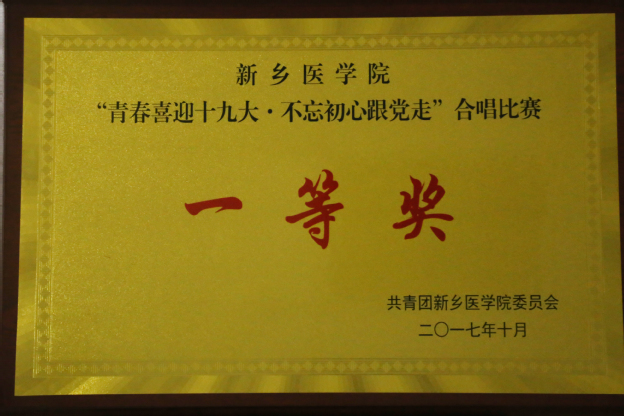 新乡医学院
“青春喜迎十九大·不忘初心跟党走”合唱比赛
一等奖
共青团新乡医学院委员会
二〇一七年十月